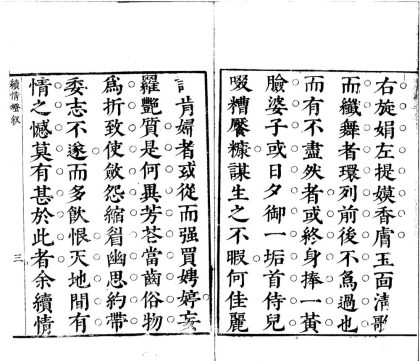 右旋娟左提嫫香膚玉面清歌
而纖舞者環列前後不爲過也
而有不盡然者或終身捧一黃
臉婆子或日夕御一垢首侍兒
啜糟饜糠謀生之不暇何佳麗
言肯婦者或從而强買娉婷妄
羅艷質是何異芳荃當齒俗物
爲折致使斂怨縮眉幽思約帶
委志不遂而多飲恨天地間有
情之憾莫有甚於此者余續情
續情燈叙
三